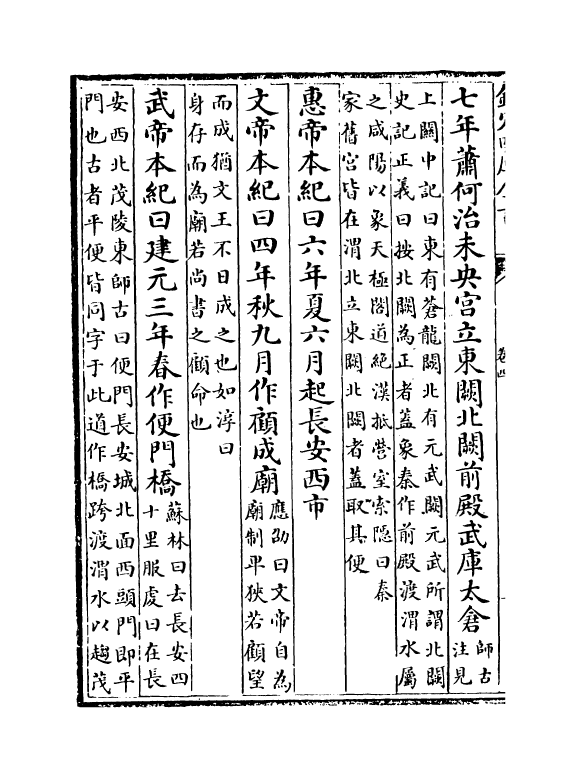 卷四
七年蕭何治未央宫立東闕北闕前殿武庫太倉師古
注見
上關中記曰東有蒼龍闕北有元武闕元武所謂北闕
史記正義曰按北闕為正者蓋象秦作前殿渡渭水屬
之咸陽以象天極閣道絶漢抵營室索隠曰秦
家舊宫皆在渭北立東闕北闕者蓋取其便
惠帝本紀曰六年夏六月起長安西市
文帝本紀曰四年秋九月作顧成廟應劭曰文帝自為
廟制平狹若顧望
而成猶文王不日成之也如淳曰
身存而為廟若尚書之顧命也
武帝本紀曰建元三年春作便門橋蘇林曰去長安四
十里服虔曰在長
安西北茂陵東師古曰便門長安城北面西頭門即平
門也古者平便皆同字于此道作橋跨渡渭水以趨茂